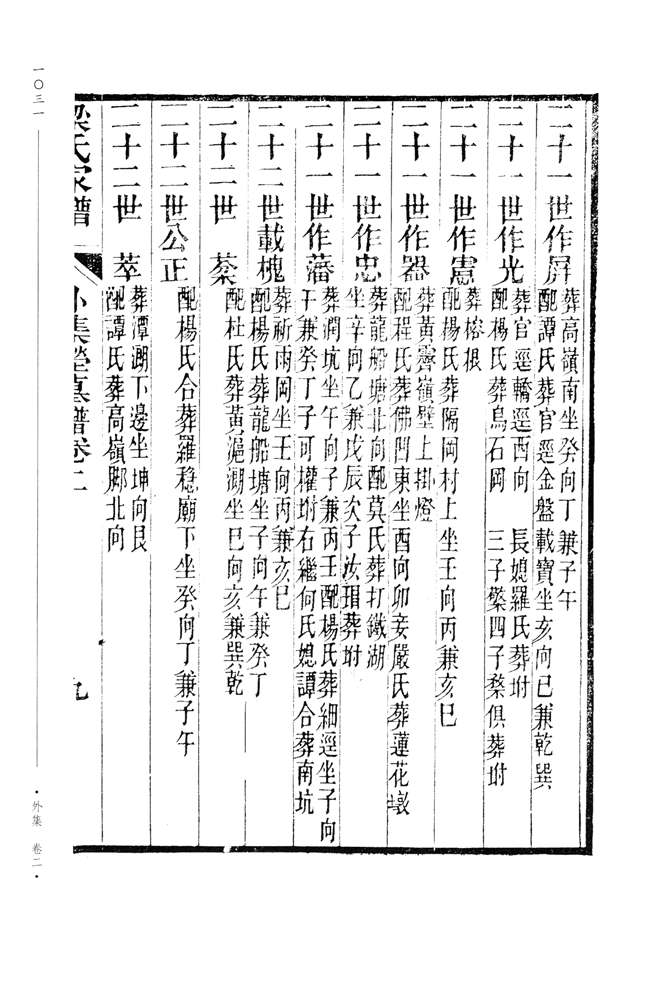 二十一世作屏
葬高嶺南坐癸向丁兼子午
配譚氏葬官逕金盤載寶坐亥向巳兼乾巽
二十一世作光
葬官逕轎逕西向 長媳羅氏葬坿
配楊氏葬烏石岡 三子檠四子棻俱葬坿
二十一世作憲
葬榕根
配楊氏葬隔岡村上坐壬向丙兼亥巳
二十一世作器
葬黃霽嶺壁上掛燈
配程氏葬佛凹東坐酉向卯妾嚴氏葬蓮花墩
二十一世作忠
葬龍船塘北向配莫氏葬打鐵湖
坐辛向乙兼戊辰次子汝瑂葬坿
二十一世作藩
葬澗坑坐午向子兼丙壬配楊氏葬細逕坐子向
午兼癸丁子可權坿右繼何氏媳譚合葬南坑
二十二世載槐
葬祈雨岡坐壬向丙兼亥巳
配楊氏葬龍船塘坐子向午兼癸丁
二十二世 棻
配杜氏葬黃滬湖坐巳向亥兼巽乾
二十二世公正
配楊氏合葬羅穩廟下坐癸向丁兼子午
二十二世 萃
葬潭湖下邊坐坤向艮
配譚氏葬高嶺腳北向
梁氏家譜 外集塋墓譜卷二 九
一〇三一
·外集 卷二·